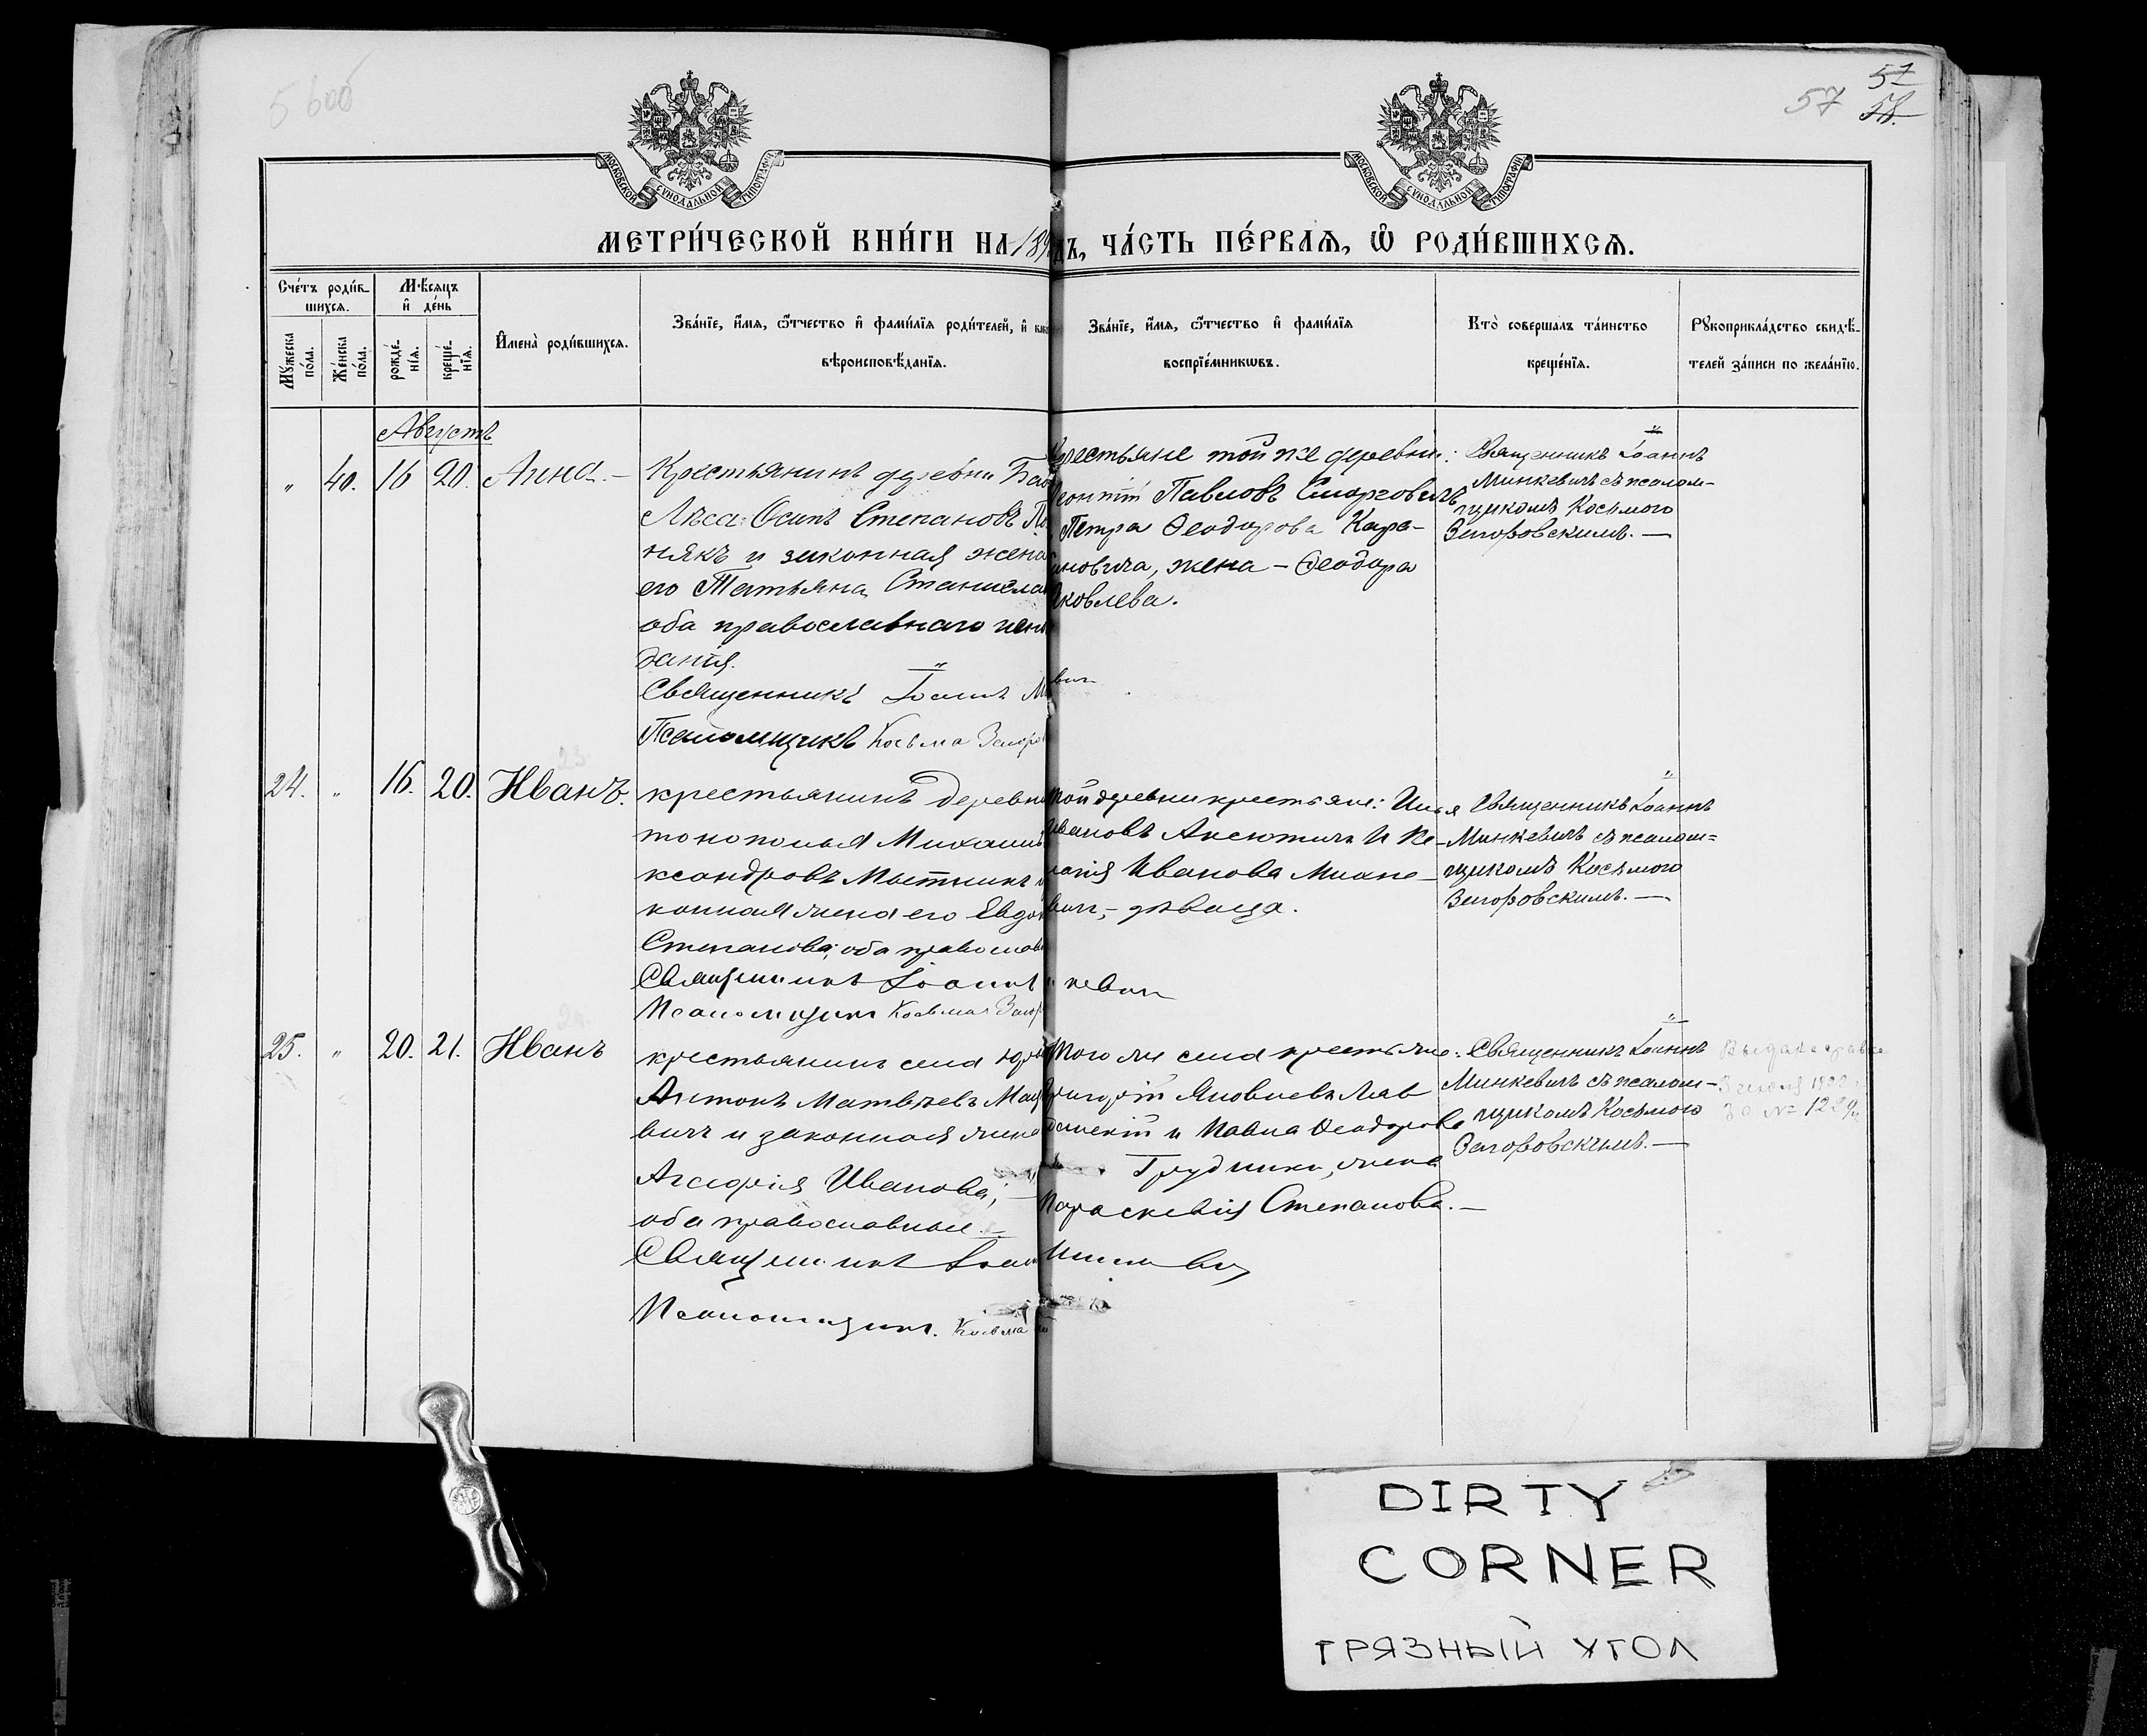 560об
57
57
58.
МОСКОВСКОЙ СѴНОДАЛЬНОЙ ТИПОГРАФІИ
МОСКОВСКОЙ СѴНОДАЛЬНОЙ ТИПОГРАФІИ
МЕТРИ́ЧЕСКОЙ КНИ́ГИ НА 189
дъ, ЧА́СТЬ ПЕ́РВАЯ, Ѿ РОДИ́ВШИХСЯ.
Сче́тъ роди́в-
шихся.
Мѣ́сяцъ
и҆ де́нь
Мꙋ́жеска
по́ла.
Же́нска
по́ла.
рожде́-
нїя.
креще́-
нїя.
И҆мена̀ роди́вшихся.
Зва́нїе, и҆́мя, ѻ҆́тчество и҆ фами́лїя роди́телей, и҆
вѣроисповѣ́данїя.
Зва́нїе, и҆́мя, ѻ҆́тчество и҆ фами́лїя
воспрїе́мникѡвъ.
Кто̀ совершалъ та́инство
креще́нїя.
Рꙋкоприкла́дство свидѣ́-
телей за́писи по жела́нїю.
Августъ
„ 40. 16 20. Анна. –
Крестьянинъ деревни Ба
Лѣса Осипъ Степановъ
някъ и законная жена
его Татьяна Станисла
оба православнаго испо
данія.
Священникъ Іоаннъ М
Псаломщикъ Косьма Загоро
Крестьяне той же деревни:
Леонтій Павловъ Сморговичъ
Петра Ѳеодорова Кара-
новича, жена – Ѳеодора
Яковлева.
вич
Священникъ Іоаннъ
Минкевичъ съ псалом-
щикомъ Косьмою
Загоровскимъ. —
23
24. „ 16. 20. Иванъ.
крестьянинъ деревни
тонополья Михаилъ
ксандровъ Мытникъ
конная жена его Евдок
Степанова; оба православ
Священникъ Іоаннъ
Псаломщикъ Косьма Загор
той деревни крестьяне: Илья
Ивановъ Аксютичъ и Ке-
ранія Иванова
вич, – дѣвица.
кевич
Священникъ Іоаннъ
Минкевичъ съ псалом=
щикомъ Косьмою
Загоровскимъ. —
24.
25. „ 20. 21. Иванъ
крестьянинъ села
Антонъ Матвѣевъ Мац
вичъ и законная жена
Иванова; –
оба православные. –
Священникъ Іоан
Псаломщикъ. Косьма
того же села крестьяне:
Григорій Яковлевъ
и Павла Ѳеодорова
жена
Параскевія Степанова. –
Минкевич
Священникъ Іоаннъ
Минкевичъ съ псалом-
щикомъ Косьмою
Загоровскимъ. —
за № 1229
DIRTY
CORNER
ГРЯЗНЫЙ УГОЛ